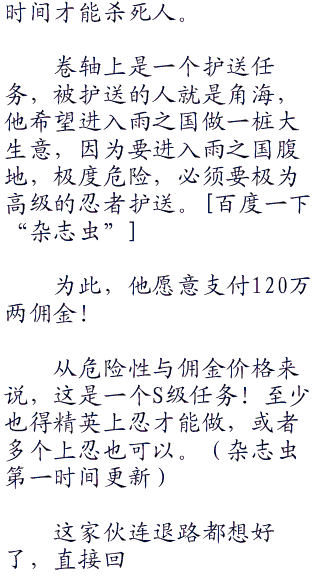 时间才能杀死人。
卷轴上是一个护送任
务，被护送的人就是角海，
他希望进入雨之国做一桩大
生意，因为要进入雨之国腹
地，极度危险，必须要极为
高级的忍者护送。[百度一下
“杂志虫”]
为此，他愿意支付120万
两佣金！
从危险性与佣金价格来
说，这是一个S级任务！至少
也得精英上忍才能做，或者
多个上忍也可以。（杂志虫
第一时间更新）
这家伙连退路都想好
了，直接回